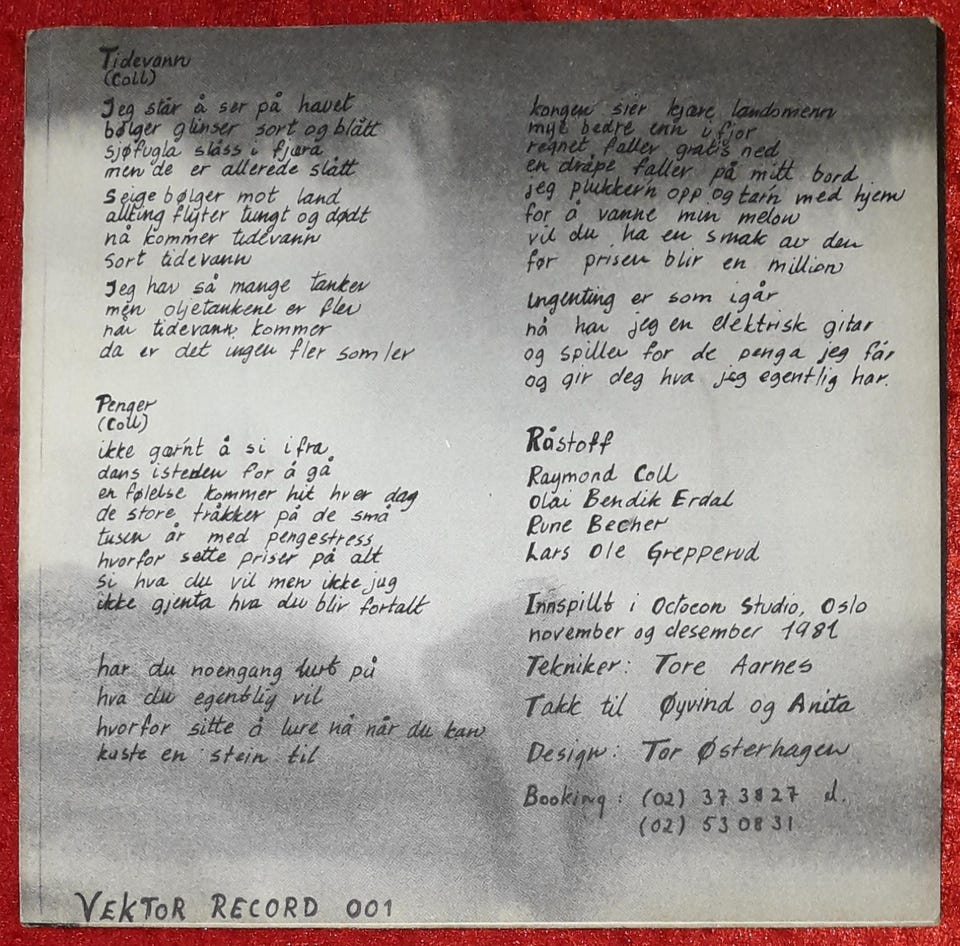 Tidevann
(Coll)
Jeg står å ser på havet
bølger glinser sort og blått
sjøfugla slåss i fjæra
men de er allerede slått
Seige bølger mot land
allting flyter tungt og dødt
nå kommer tidevann
sort tidevann
Jeg har så mange tanker
men oljetankene er fler
når tidevann kommer
da er det ingen fler som ler
Penger
(Coll)
ikke gærnt å si ifra
dans isteden for å gå
en følelse kommer hit hver dag
de store tråkker på de små
tusen år med pengestress
hvorfor sette priser på alt
si hva du vil men ikke jug
ikke gjenta hva du blir fortalt
har du noengang lurt på
hva du egentlig vil
hvorfor sitte å lure nå når du kan
kaste en stein til
kongen sier kjære landsmenn
mye bedre enn i fjor
regnet faller gratis ned
en dråpe faller på mitt bord
jeg plukker'n opp og tar'n med hjem
for å vanne min melon
vil du ha en smak av den
før prisen blir en million
ingenting er som igår
nå har jeg en elektrisk gitar
og spiller for de penga jeg får
og gir deg hva jeg egentlig har.
Råstoff
Raymond Coll
Olai Bendik Erdal
Rune Becher
Lars Ole Grepperud
Innspillt i Octocon Studio, Oslo
november og desember 1981
Tekniker: Tore Aarnes
Takk til Øyvind og Anita
Design: Tor Østerhagen
Booking: (02) 37 38 27 d.
(02) 53 08 31
VEKTOR RECORD 001